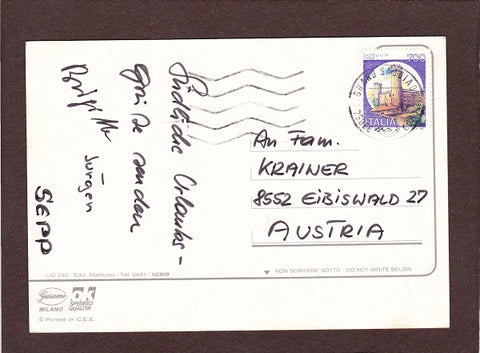 Südliche Urlaubs-
grüße senden
Jürgen
SEPP
700
ITALIA
An Fam.
KRAINER
8552 EiBiSWALD 27
AUSTRIA
LIG 233 - Ediz. Mattiussi - Tel. 0431 / 50308
NON SCRIVERE SOTTO - DO NOT WRITE BELOW
Garami
MILANO
QUALITÀ
© Printed in C.E.E.